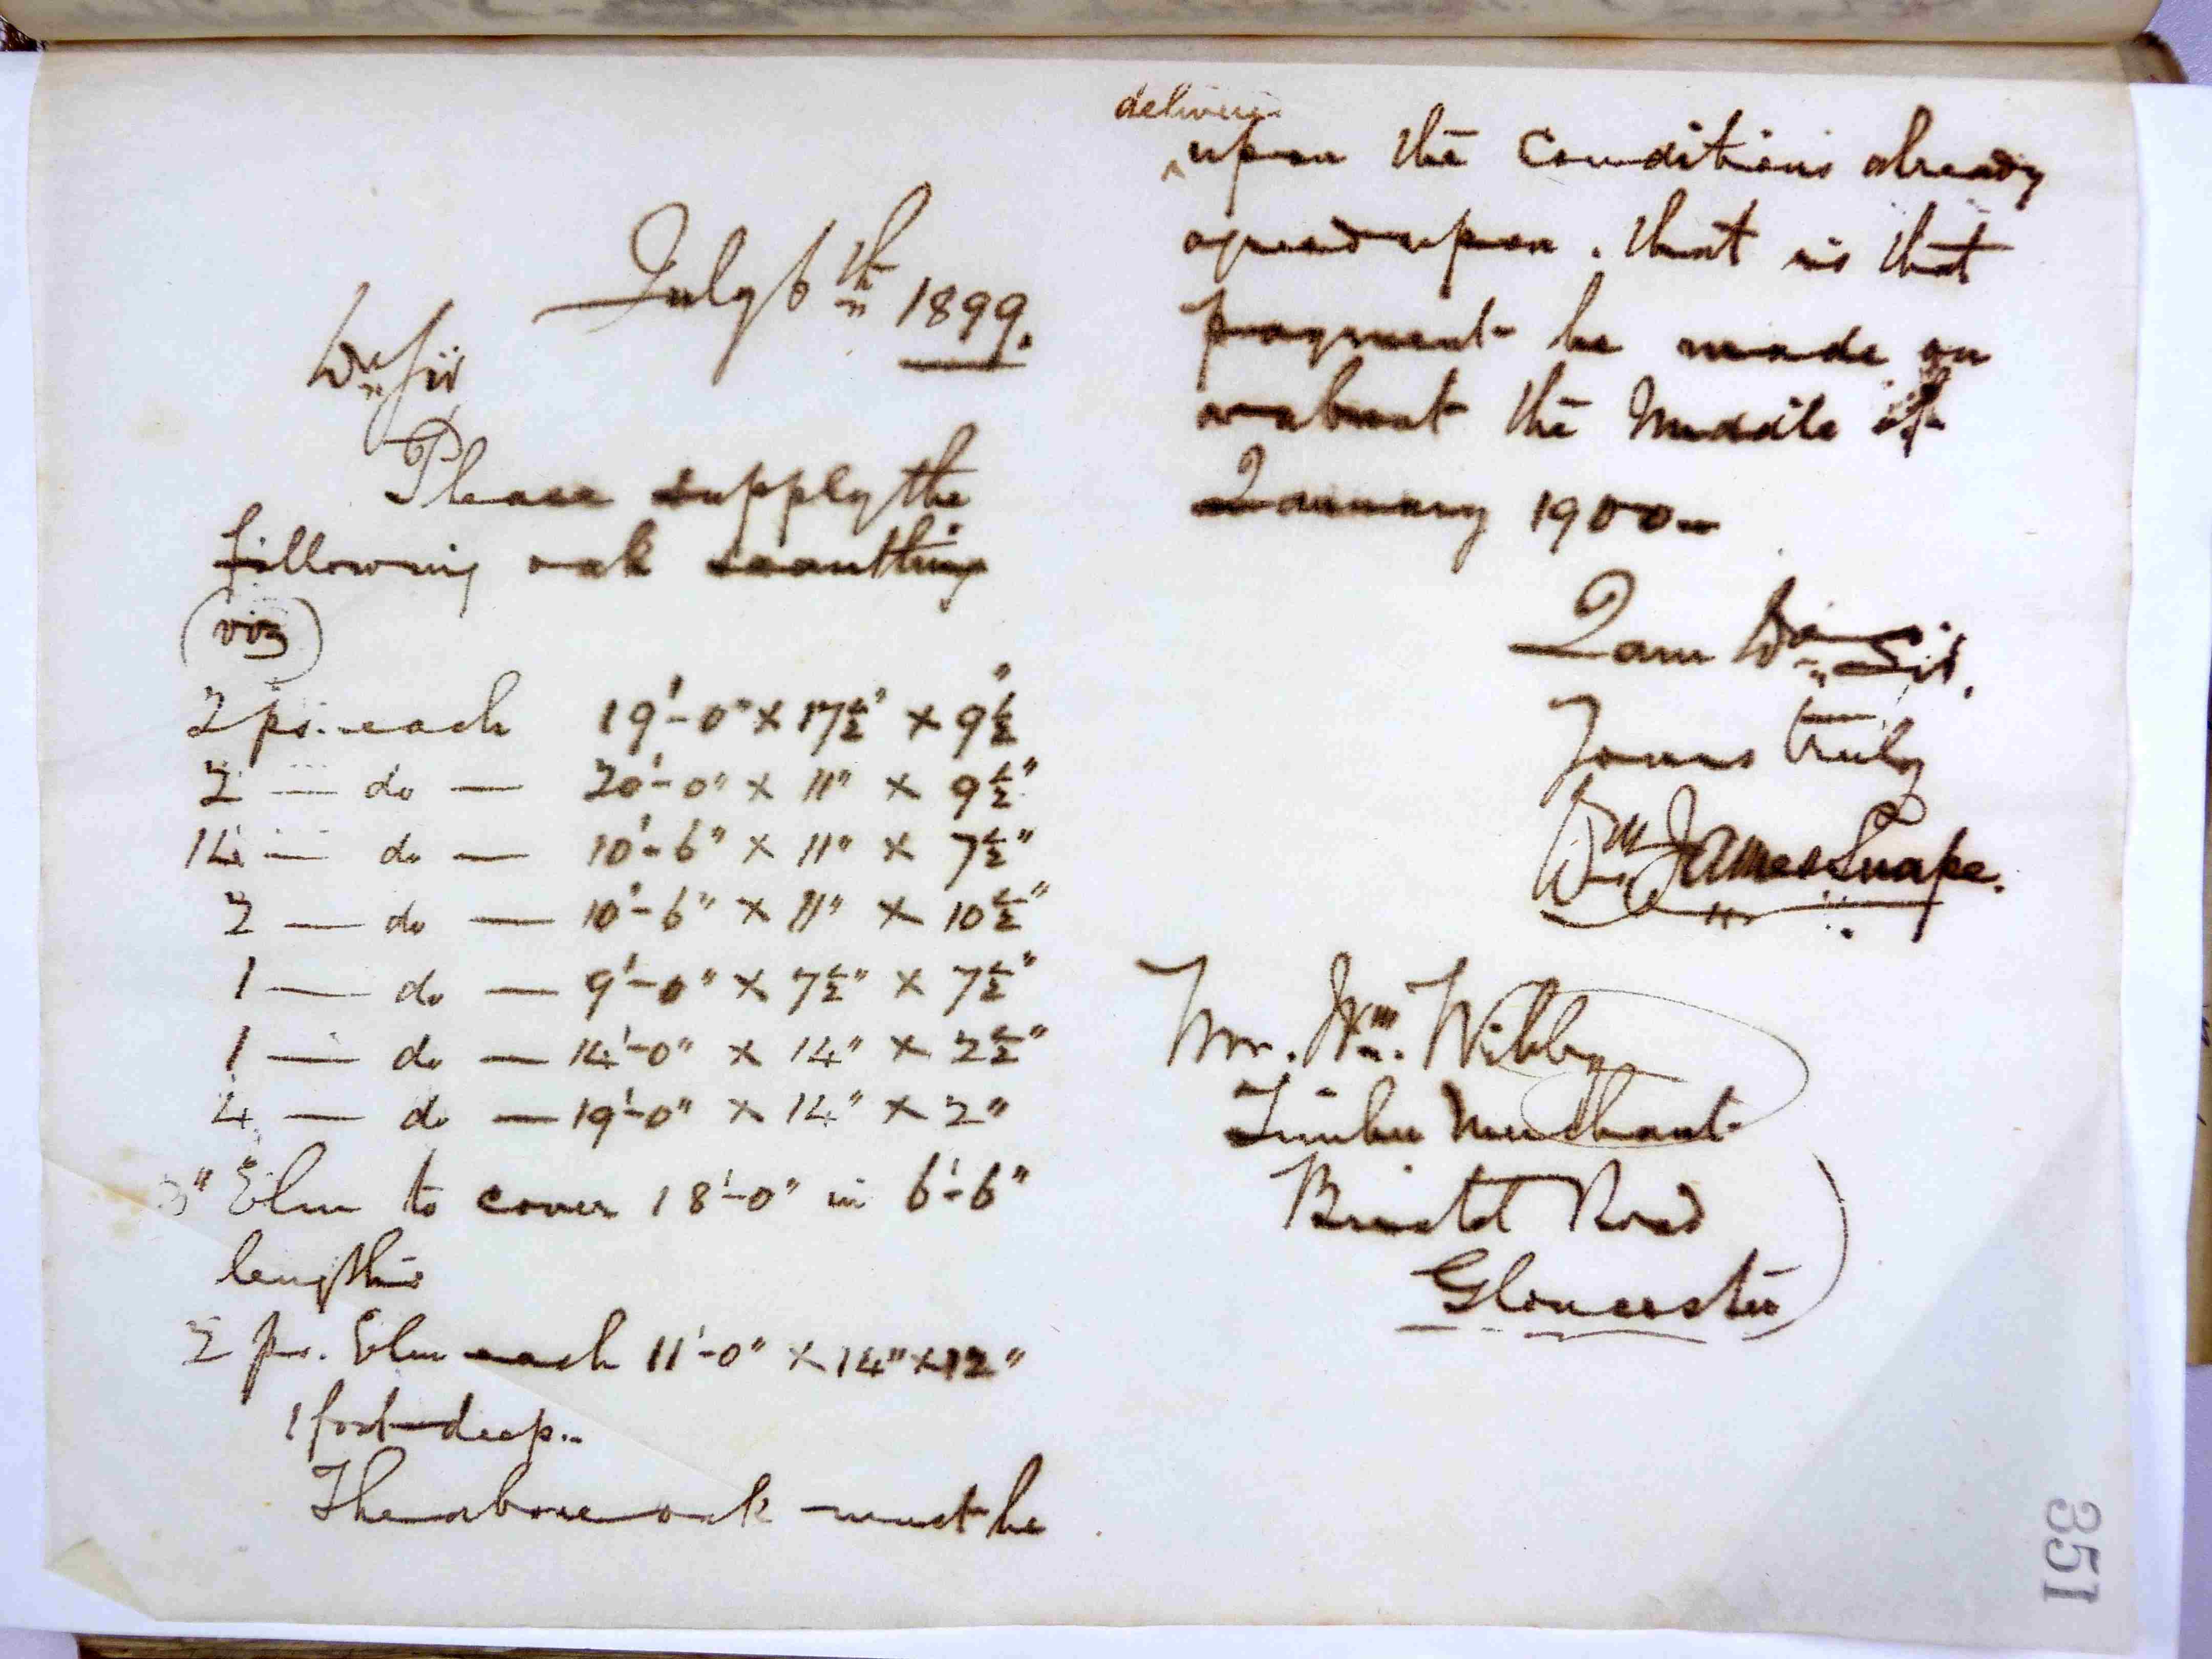 July 6th 1899.
Dr Sir
Please supply the
following oak scantling
(viz)
2 ps. each 19'-0" x 17½" x 9½"
2 — do — 20'-0" x 11" x 9½"
14 — do — 10'-6" x 11" x 7½"
2 — do — 10'-6" x 11" x 10½"
1 — do — 9'-0" x 7½" x 7½"
1 — do — 14'-0" x 14" x 2½"
4 — do — 19'-0" x 14" x 2"
3" Elm to cover 18'-0" in 6'-6"
lengths
2 ps. Elm each 11'-0" x 14" x 12"
1 foot deep..
The above oak must be
delivered
upon the conditions already
agreed upon. that is that
payment be made on
or about the Middle of
January 1900
I am Dr Sir,
Yours truly
Wm James Snape.
Mr. Wm. Wibby
Timber Merchant
Bristol Road
Gloucester
351